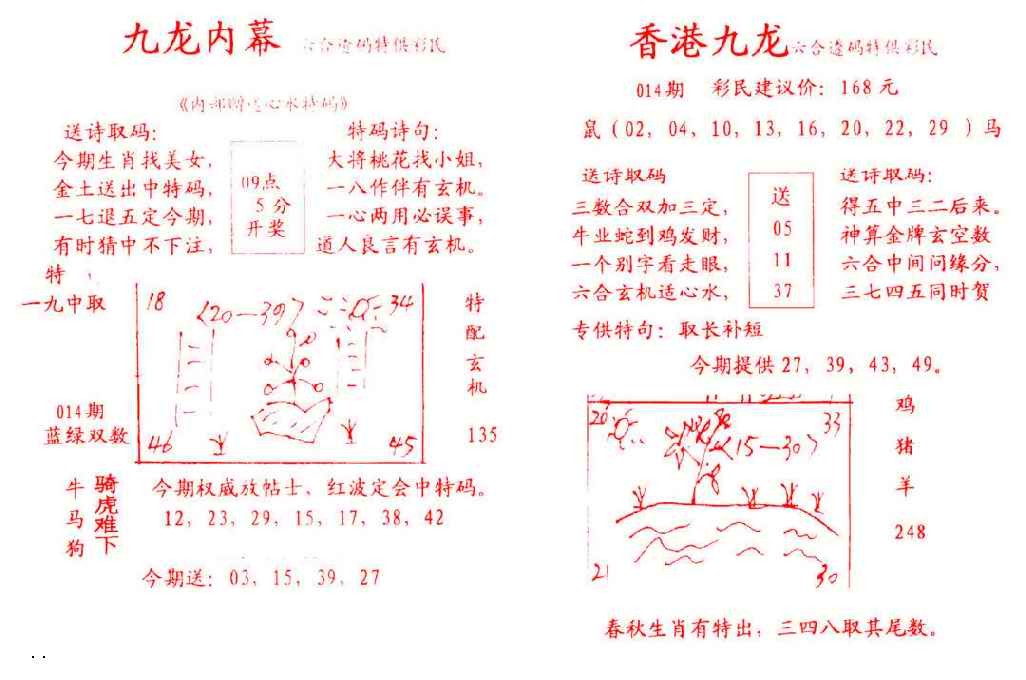 九龙内幕 六合透码特供彩民
《内部赠送心水特码》
送诗取码：
今期生肖找美女，
金土送出中特码，
一七退五定今期，
有时猜中不下注，
特
一九中取
09点
5分
开奖
特码诗句：
大将桃花找小姐，
一八作伴有玄机。
一心两用必误事，
道人良言有玄机。
18
〈20—39〉
34
46
45
014期
蓝绿双数
特
配
玄
机
135
牛
马
狗
骑
虎
难
下
今期权威放帖士、红波定会中特码。
12, 23, 29, 15, 17, 38, 42
今期送：03, 15, 39, 27
香港九龙 六合透码特供彩民
014期 彩民建议价：168元
鼠（02, 04, 10, 13, 16, 20, 22, 29 ）马
送诗取码
三数合双加三定，
牛业蛇到鸡发财，
一个别字看走眼，
六合玄机适心水，
送
05
11
37
送诗取码：
得五中三二后来。
神算金牌玄空数
六合中间问缘分，
三七四五同时贺
专供特句：取长补短
今期提供27, 39, 43, 49。
20
33
〈15—30〉
21
30
鸡
猪
羊
248
春秋生肖有特出；三四八取其尾数。